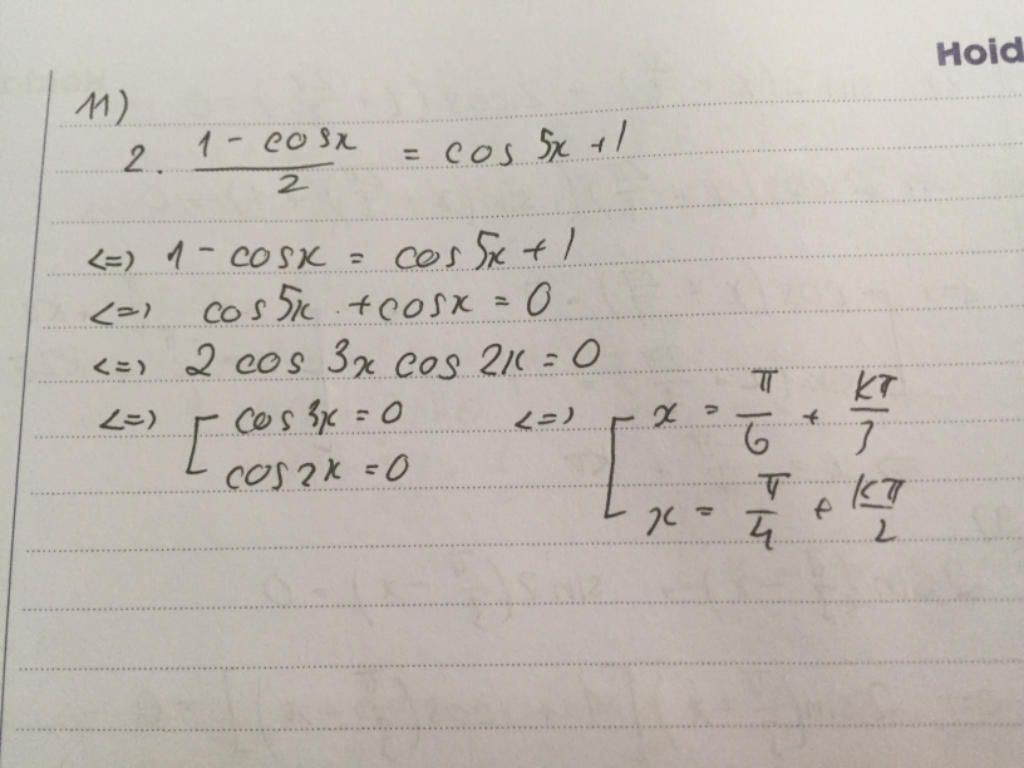 Hoid
11)
2. \frac{1 - cosx}{2} = cos 5x + 1
<=> 1 - cosx = cos 5x + 1
<=> cos 5x + cosx = 0
<=> 2 cos 3x cos 2x = 0
<=> [ cos 3x = 0 <=> [ x = \frac{π}{6} + \frac{kπ}{3}
cos 2x = 0 x = \frac{π}{4} + \frac{kπ}{2}